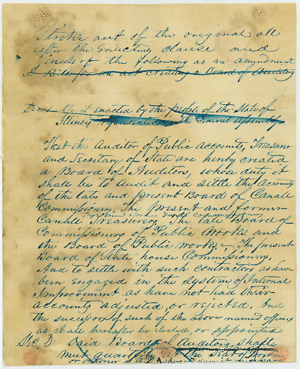 Stroke out of the original all
after the Enacting clause and
insert the following as an amendment
A Bill for an act creating a Board of Auditors
Be it enacted by the people of the State of
Illinois represented in the General Assembly
That the Auditor of Public accounts, Treasurer
and Secretary of State are hereby created
a Board of Auditors, whose duty it
shall be to Audit and settle the accounts
of the late and present Board of Canal
Commissioners, the Present and former
Canal Treasurers. The late Board of
Commissioners of Public Works and
the Board of Public works — The present
Board of State house Commissioners,
And to settle with such Contractors as have
been engaged in the System of Internal
Improvement as have not had their
accounts adjusted, or rejected. And
the successors of such of the above named officers
as shall hereafter be elected or appointed
Sec. 2. Said Board of Auditors shall
meet quarterly at the Seat of